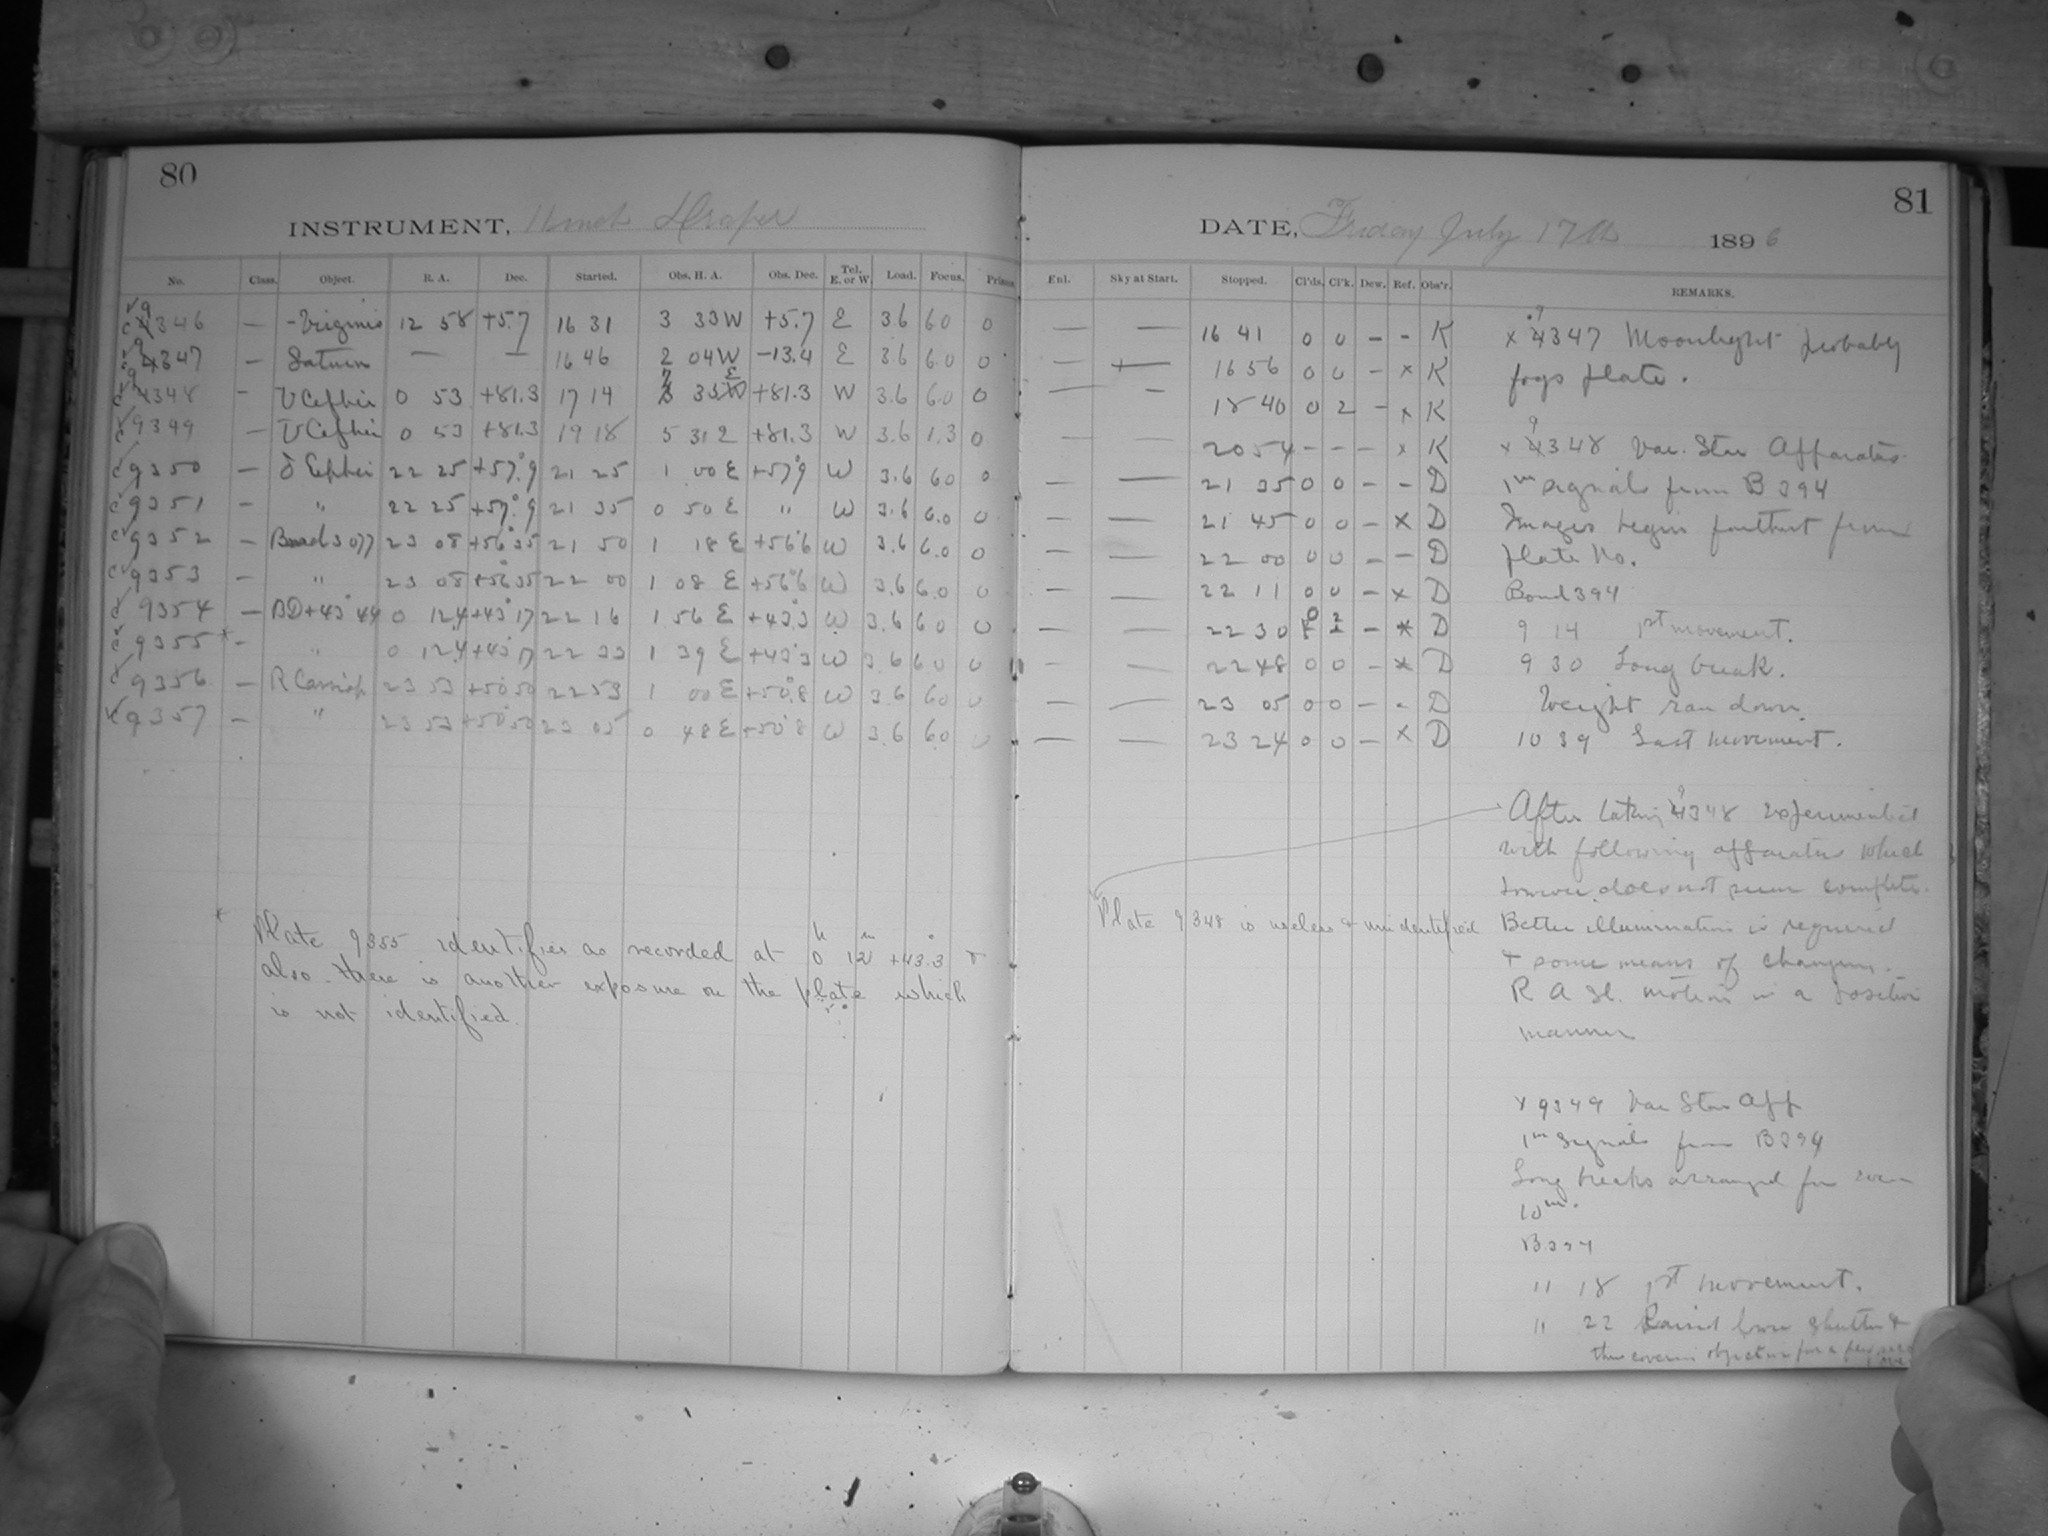 80
INSTRUMENT, 11 inch Draper
No. Class. Object. R. A. Dec. Started. Obs. H. A. Obs. Dec. Tel. E. or W. Load. Focus. Prisms
9346 — - Virginis 12 58 +5.7 16 31 3 33 W +5.7 E 3.6 6.0 0
9347 — Saturn — — 16 46 2 04 W -13.4 E 3.6 6.0 0
9348 - U Cephei 0 53 +81.3 17 14 7 33 E +81.3 W 3.6 6.0 0
9349 — U Cephei 0 53 +81.3 19 18 5 31 +81.3 W 3.6 1.3 0
9350 — δ Cephei 22 25 +57°.9 21 25 1 00 E +57°.9 W 3.6 6.0 0
9351 — " 22 25 +57°.9 21 35 0 50 E " W 3.6 6.0 0
9352 — Bond 3077 23 08 +56°35 21 50 1 18 E +56°.6 W 3.6 6.0 0
9353 — " 23 08 +56°35 22 00 1 08 E +56°.6 W 3.6 6.0 0
9354 — BD+43°44 0 12.4 +43°17 22 16 1 56 E +43°.3 W 3.6 6.0 0
9355* " 0 12.4 +43°17 22 33 1 39 E +43°.3 W 3.6 6.0 0
9356 — R Cassiop 23 53 +50°50 22 53 1 00 E +50°.8 W 3.6 6.0 0
9357 — " 23 53 +50°50 23 05 0 48 E +50°.8 W 3.6 6.0 0
* Plate 9355 identifies as recorded at 0h 12m +43°.3 &
also there is another exposure on the plate which
is not identified.
81
DATE, Friday July 17th 1896
Enl. Sky at Start. Stopped. Cl'ds. Cl'k. Dew. Ref. Obs'r. REMARKS.
— — 16 41 0 0 - - K
— — 16 56 0 0 - x K
— - 18 40 0 2 - x K
— — 20 54 - - - x K
— — 21 35 0 0 - - D
— — 21 45 0 0 - x D
— — 22 00 0 0 - - D
— — 22 11 0 0 - x D
— — 22 30 0 2 - * D
— — 22 48 0 0 - * D
— — 23 05 0 0 - - D
— — 23 24 0 0 - x D
x 9347 Moonlight probably
fogs plate.
x 9348 Var. Star Apparatus
1m signals from B 394
Images begin farthest from
plate No.
Bond 394
9 14 1st movement.
9 30 Long break.
Weight ran down
10 39 Last movement.
After taking 9348 experimented
with following apparatus which
however does not seem complete.
Better illumination is required
+ some means of changing
R A sl. motion in a positive
manner
Plate 9348 is useless & unidentified
x 9349 Var Star App
1m signals from B394
Long breaks arranged for every
10m.
B394
11 18 1st movement.
11 22 Raised lower shutter &
thus covering objective for a few